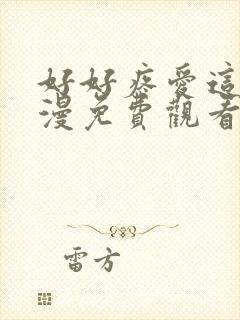 好好疼愛這
漫免費觀看
雷方